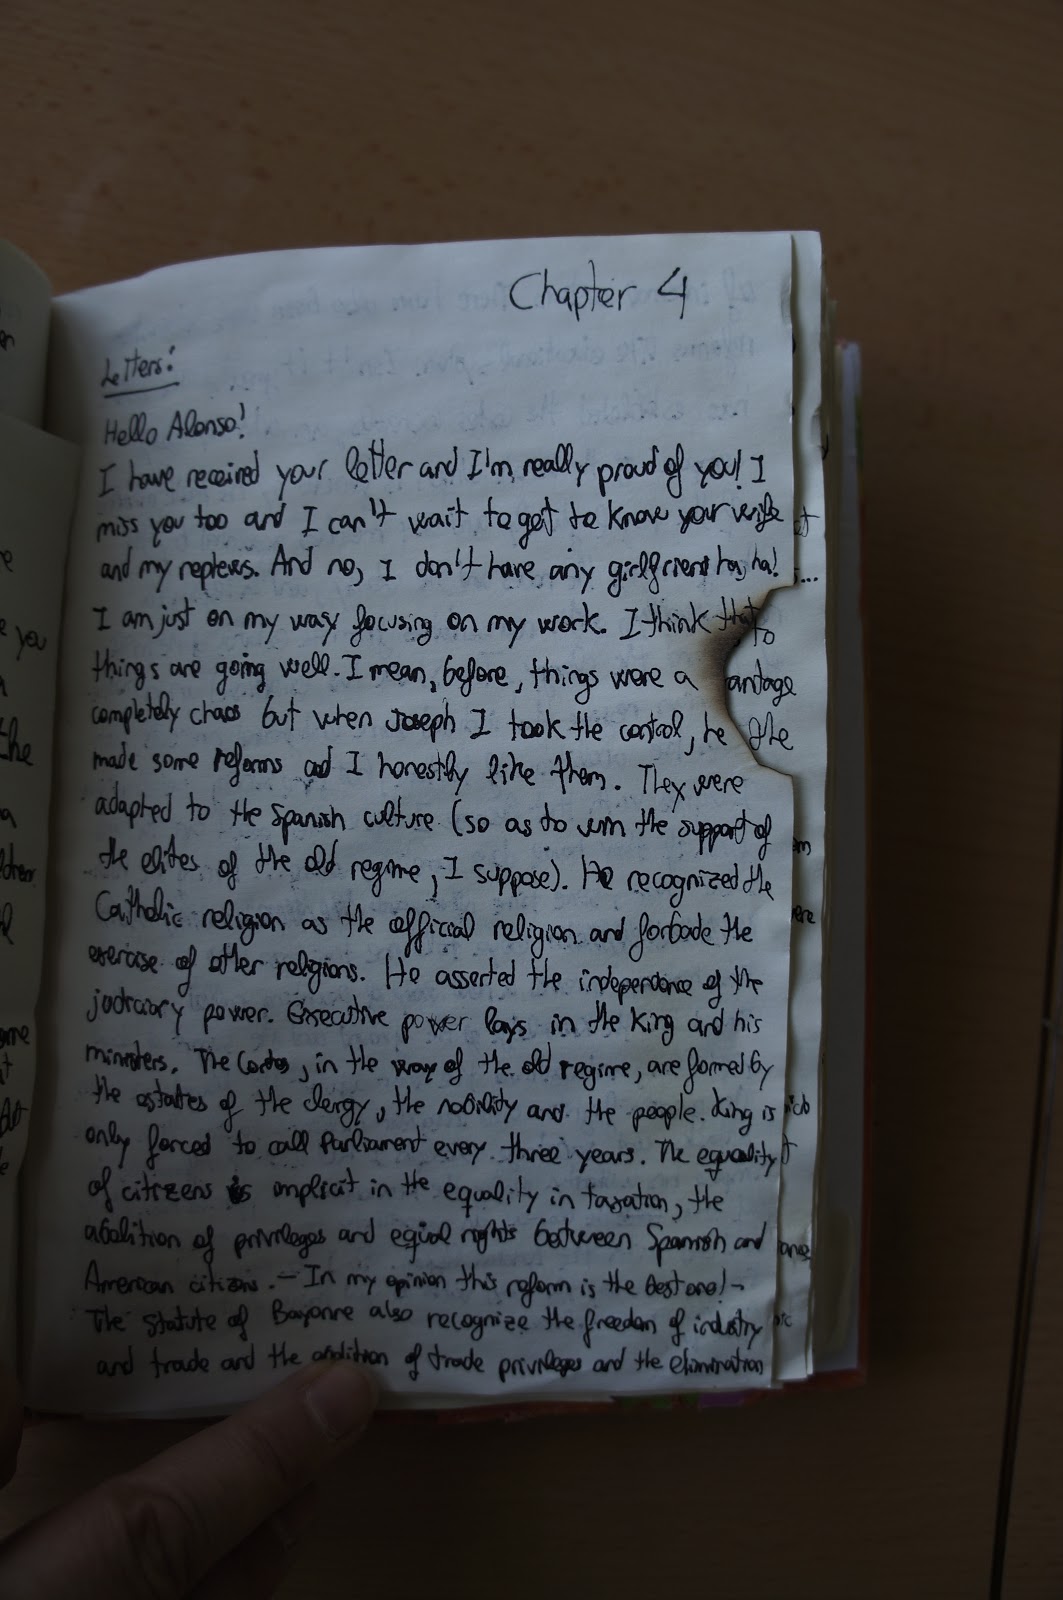 Chapter 4
Letters:
Hello Alonso!
I have received your letter and I'm really proud of you! I
miss you too and I can't wait to get to know your wife
and my nephews. And no, I don't have any girlfriend ha, ha!
I am just on my way focusing on my work. I think that
things are going well. I mean, before, things were a
completely chaos but when Joseph I took the control, he
made some reforms and I honestly like them. They were
adapted to the Spanish culture (so as to win the support of
the elites of the old regime, I suppose). He recognized the
Catholic religion as the official religion and forbade the
exercise of other religions. He asserted the independence of the
judiciary power. Executive power lays in the King and his
ministers. The Cortes, in the way of the old regime, are formed by
the estates of the clergy, the nobility and the people. King is
only forced to call Parliament every three years. The equality
of citizens is implicit in the equality in taxation, the
abolition of privileges and equal rights between Spanish and
American citizens. - In my opinion this reform is the best one! -
The Statute of Bayonne also recognize the freedom of industry
and trade and the abolition of trade privileges and the elimination
to
antage
the
you
the